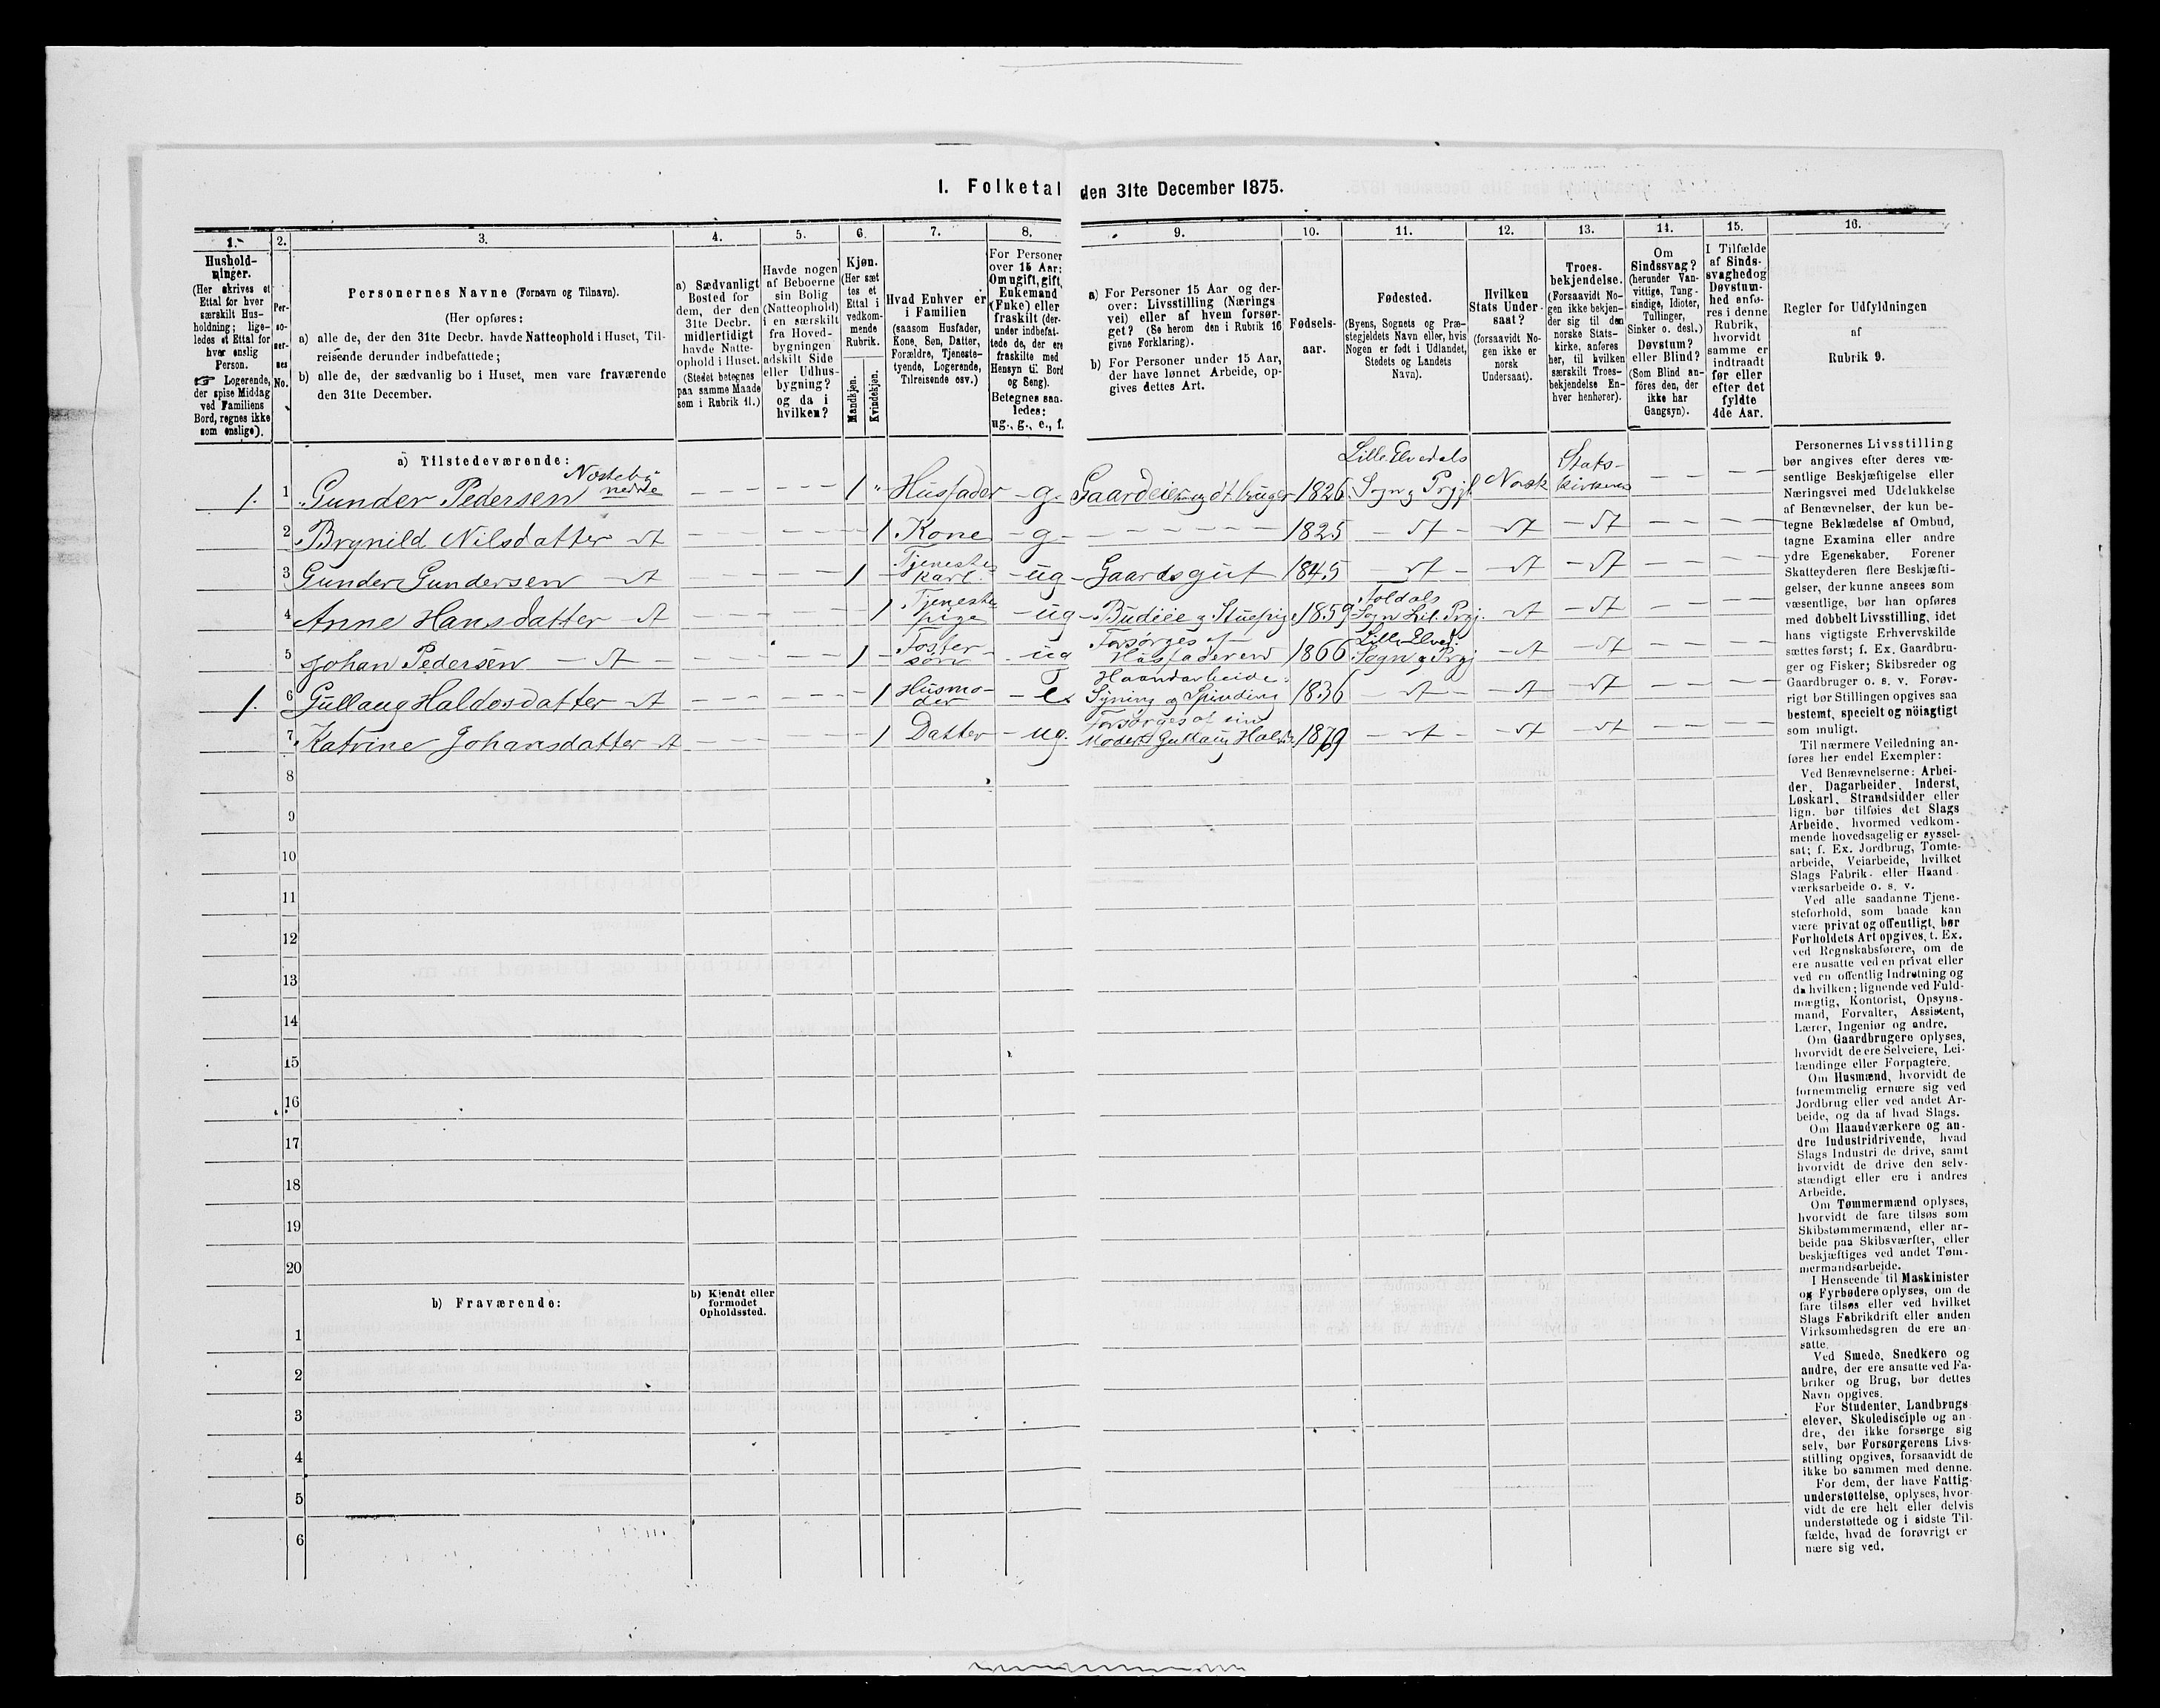 I. Folketal den 31te December 1875.
1.
Hushold-
ninger.
(Her skrives et
Ettal for hver
særskilt Hus-
holdning; lige-
ledes et Ettal for
hver enslig
Person.
☞ Logerende,
der spise Middag
ved Familiens
Bord, regnes ikke
som enslige).
2.
Per-
so-
ner-
nes
No.
3.
Personernes Navne (Fornavn og Tilnavn).
(Her opføres:
a) alle de, der den 31te Decbr. havde Natteophold i Huset, Til-
reisende derunder indbefattede;
b) alle de, der sædvanlig bo i Huset, men vare fraværende
den 31te December.
4.
a) Sædvanligt
Bosted for
dem, der den
31te Decbr.
midlertidigt
havde Natte-
ophold i Huset.
(Stedet betegnes
paa samme Maade
som i Rubrik 11.)
5.
Havde nogen
af Beboerne
sin Bolig
(Natteophold)
i en særskilt
fra Hoved-
bygningen
adskilt Side
eller Udhus-
bygning?
og da i
hvilken?
6.
Kjøn.
(Her sæt
tes et
Ettal i
vedkom-
mende
Rubrik.
Mandkjøn.
Kvindekjøn.
7.
Hvad Enhver er
i Familien
(saasom Husfader,
Kone, Søn, Datter,
Forældre, Tjeneste-
tyende, Logerende,
Tilreisende osv.)
8.
For Personer
over 15 Aar:
Om ugift, gift,
Enkemand
(Enke) eller
fraskilt (der-
under indbefat-
tede de, der ere
fraskilte med
Hensyn til Bord
og Seng).
Betegnes saa-
ledes:
ug., g., e., f.
9.
a) For Personer 15 Aar og der-
over: Livsstilling (Nærings
vei) eller af hvem forsør-
get? (Se herom den i Rubrik 16
givne Forklaring).
b) For Personer under 15 Aar,
der have lønnet Arbeide, op-
gives dettes Art.
10.
Fødsels-
aar.
11.
Fødested.
(Byens, Sognets og Præ-
stegjeldets Navn eller, hvis
Nogen er født i Udlandet,
Stedets og Landets
Navn).
12.
Hvilken
Stats Under-
saat?
(forsaavidt No-
gen ikke er
norsk
Undersaat).
13.
Troes-
bekjendelse.
(Forsaavidt No-
gen ikke bekjen-
der sig til den
norske Stats-
kirke, anføres
her, til hvilken
særskilt Troes-
bekjendelse En-
hver henhører).
14.
Om
Sindssvag?
(herunder Van-
vittige, Tung-
sindige, Idioter,
Tullinger,
Sinker o. desl.)
Døvstum?
eller Blind?
(Som Blind an-
føres den, der
ikke har
Gangsyn).
15.
I Tilfælde
af Sinds-
svaghed og
Døvstum-
hed anfø-
res i denne
Rubrik,
hvorvidt
samme er
indtraadt
før eller
efter det
fyldte
4de Aar.
16.
Regler for Udfyldningen
af
Rubrik 9.
a) Tilstedeværende:
1. 1 Gunder Pedersen Nosteby nedre 1 " Husfader g. Gaardeier og dt bruger 1826 Lille Elvedals Sogn og Prgj. Norsk Statskirkens
2 Brynild Nilsdatter dt 1 Kone g 1825 dt dt dt
3 Gunder Gundersen dt 1 Tjeneste karl ug Gaardsgut 1845 dt dt dt
4 Anne Hansdatter dt 1 Tjeneste pige ug Budeie og Stuepige 1859 Foldals Sogn Lil. Prgj. dt dt
5 Johan Pedersen dt 1 Foster søn ug Forsørges af Husfaderen 1866 Lille Elved. Sogn og Prgj dt dt
1. 6 Gullaug Haldosdatter dt 1 Husmoder e. Haandarbeide: Syning og Spinding 1836 dt dt dt
7 Katrine Johansdatter dt 1 Datter ug. Forsørges af sin Moder Gullaug Haldsd. dt dt dt
8
9
10
11
12
13
14
15
16
17
18
19
20
b) Fraværende:
b) Kjendt eller
formodet
Opholdssted.
1
2
3
4
5
6
Personernes Livsstilling
bør angives efter deres væ-
sentlige Beskjæftigelse eller
Næringsvei med Udelukkelse
af Benævnelser, der kun be-
tegne Beklædelse af Ombud,
tagne Examina eller andre
ydre Egenskaber. Forener
Skatteyderen flere Beskjæfti-
gelser, der kunne ansees som
væsentlige, bør han opføres
med dobbelt Livsstilling, idet
hans vigtigste Erhvervskilde
sættes først; f. Ex. Gaardbru-
ger og Fisker; Skibsreder og
Gaardbruger o. s. v. Forøv-
rigt bør Stillingen opgives saa
bestemt, specielt og nöiagtigt
som muligt.
Til nærmere Veiledning an-
føres her endel Exempler:
Ved Benævnelserne: Arbei-
der, Dagarbeider, Inderst,
Løskarl, Strandsidder eller
lign. bør tilføies det Slags
Arbeide, hvormed vedkom-
mende hovedsagelig er syssel-
sat; f. Ex. Jordbrug, Tomte-
arbeide, Veiarbeide, hvilket
Slags Fabrik- eller Haand-
værksarbeide o. s. v.
Ved alle saadanne Tjene-
steforhold, som baade kan
være privat og offentligt, bør
Forholdets Art opgives, t. Ex.
ved Regnskabsførere, om de
ere ansatte ved en privat eller
ved en offentlig Indretning og
da hvilken; lignende ved Fuld-
mægtig, Kontorist, Opsyns-
mand, Forvalter, Assistent,
Lærer, Ingeniør og andre.
Om Gaardbrugere oplyses,
hvorvidt de ere Selveiere, Lei-
lændinge eller Forpagtere.
Om Husmænd, hvorvidt de
fornemmelig ernære sig ved
Jordbrug eller ved andet Ar-
beide, og da af hvad Slags.
Om Haandværkere og an-
dre Industridrivende, hvad
Slags Industri de drive, samt
hvorvidt de drive den selv-
stændigt eller ere i andres
Arbeide.
Om Tømmermænd oplyses,
hvorvidt de fare tilsøs som
Skibstømmermænd, eller ar-
beide paa Skibsværfter, eller
beskjæftiges ved andet Tøm-
mermandsarbeide.
I Henseende til Maskinister
og Fyrbødere oplyses, om de
fare tilsøs eller ved hvilket
Slags Fabrikdrift eller anden
Virksomhedsgren de ere an-
satte.
Ved Smede, Snedkere og
andre, der ere ansatte ved Fa-
briker og Brug, bør dettes
Navn opgives.
For Studenter, Landbrugs-
elever, Skoledisciple og an-
dre, der ikke forsørge sig
selv, bør Forsørgerens Livs-
stilling opgives, forsaavidt de
ikke bo sammen med denne.
For dem, der have Fattig-
understøttelse, oplyses, hvor-
vidt de ere helt eller delvis
understøttede og i sidste Til-
fælde, hvad de forøvrigt er
nære sig ved.